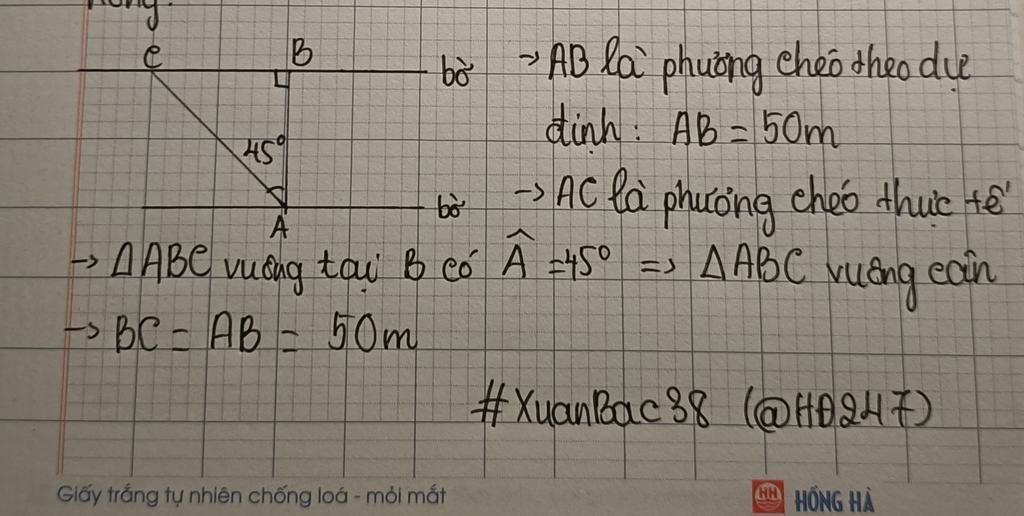 C B bờ
45°
A bờ
→ AB là phương chéo theo dự
định: AB = 50m
→ AC là phương chéo thực tế
→ ΔABC vuông tại B có Â = 45° => ΔABC vuông cân
→ BC = AB = 50m
#XuanBac38 (@HĐ247)
Giấy trắng tự nhiên chống loá - mỏi mắt
HH HỒNG HÀ